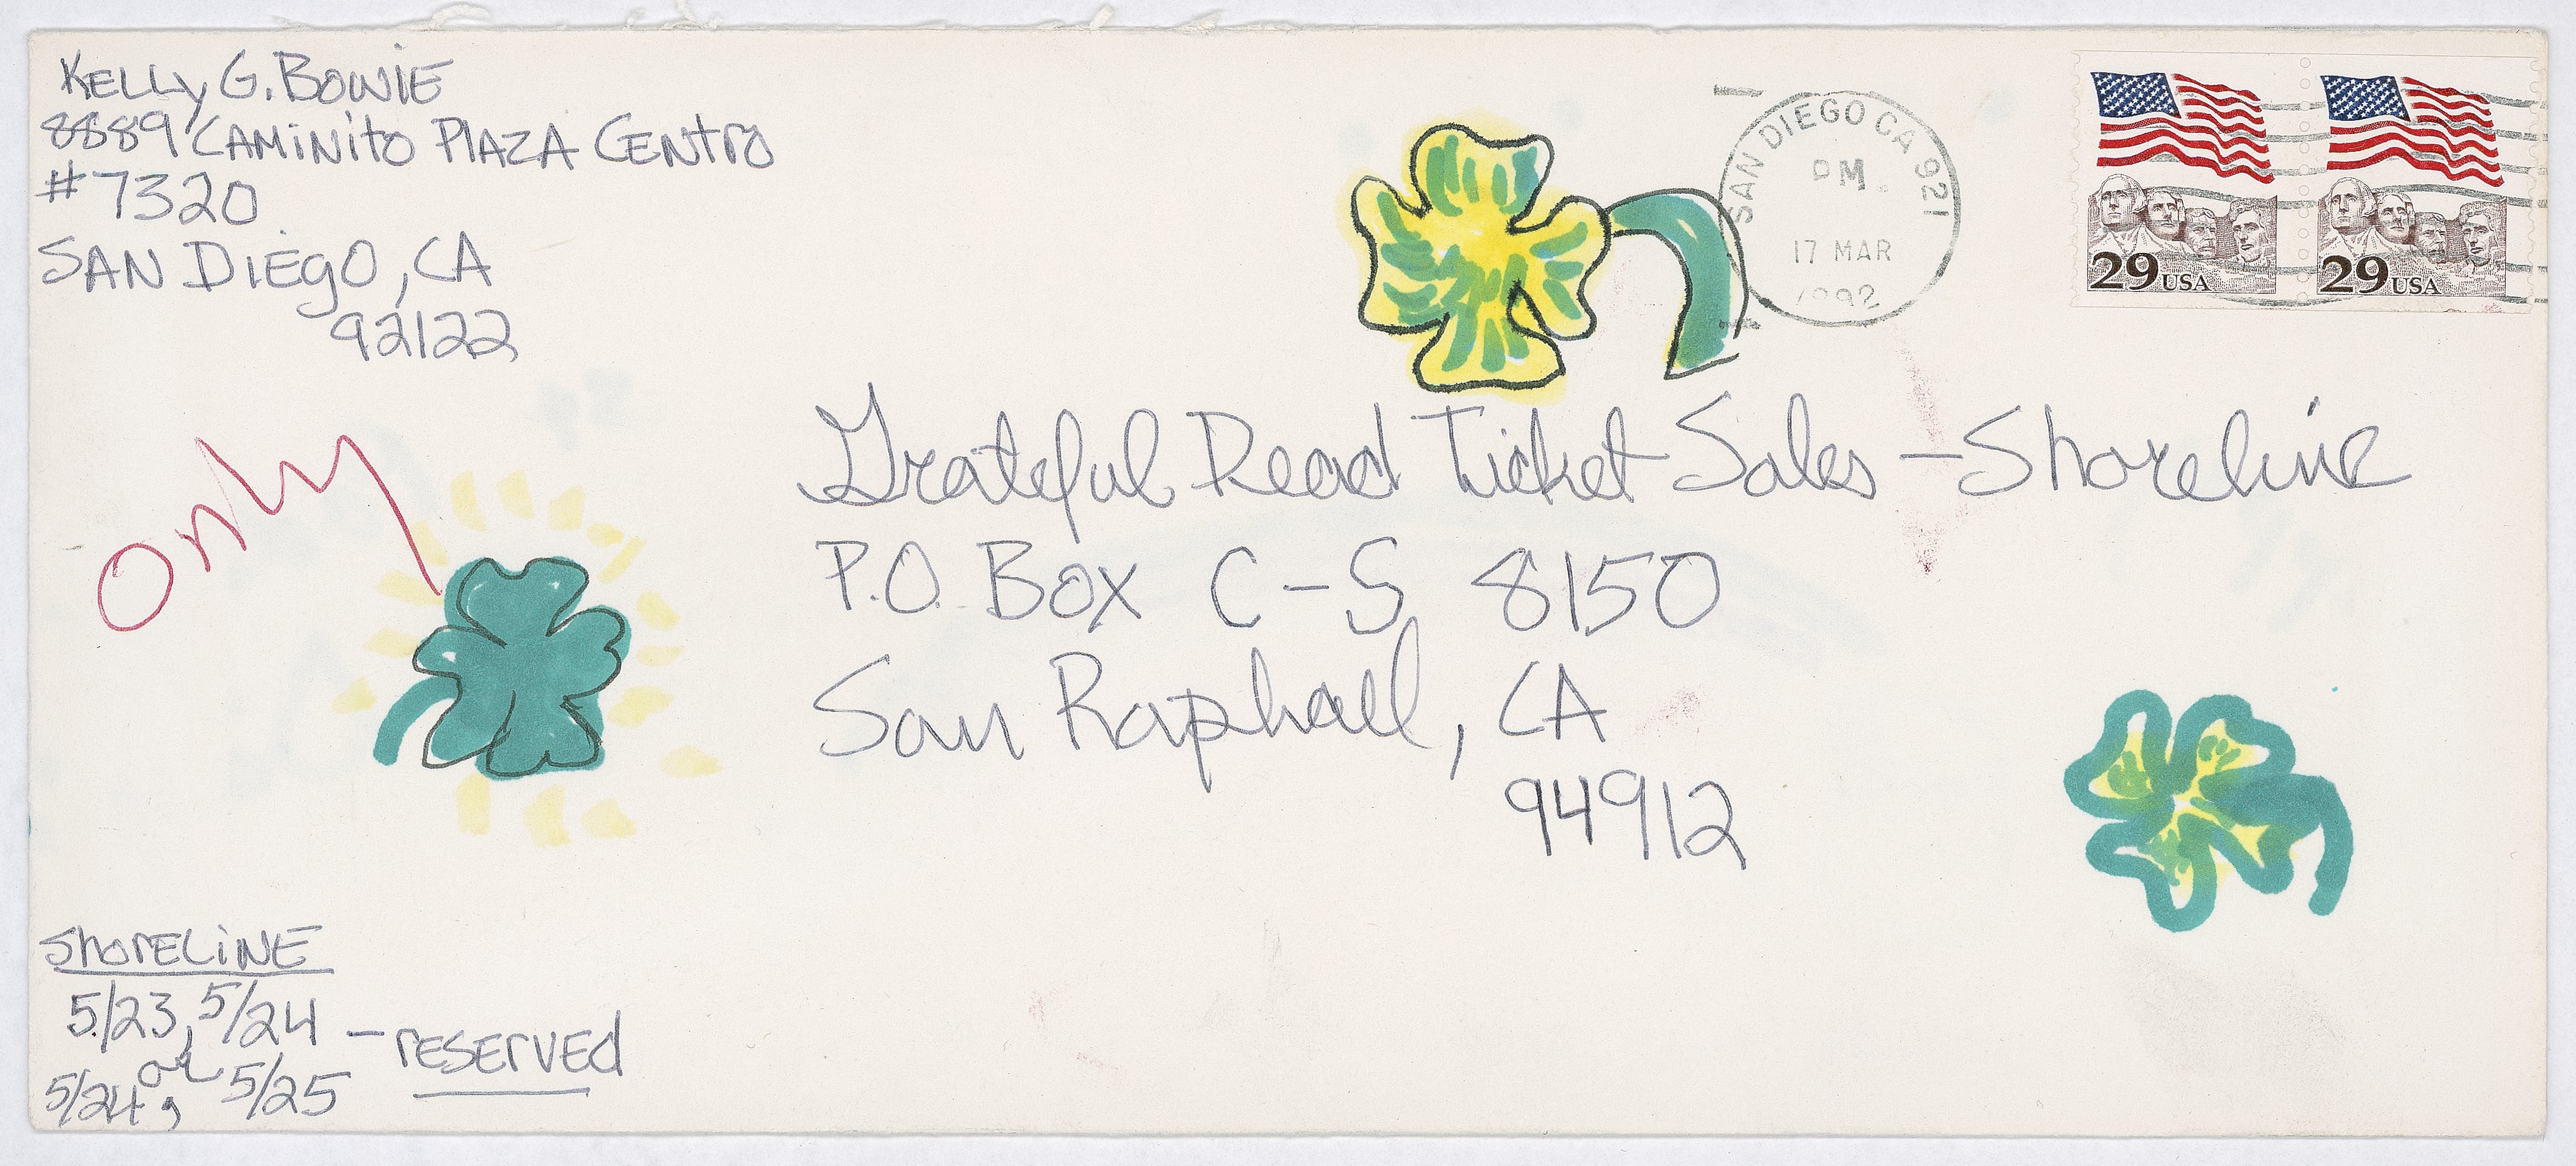 Kelly G. Bowie
8889 Caminito Plaza Centro
#7320
San Diego, CA
92122
SAN DIEGO CA 921
PM
17 MAR
1992
29 USA
29 USA
only
Grateful Dead Ticket Sales - Shoreline
P.O. Box C-S 8150
San Raphael, CA
94912
Shoreline
5/23, 5/24 - reserved
or
5/24, 5/25